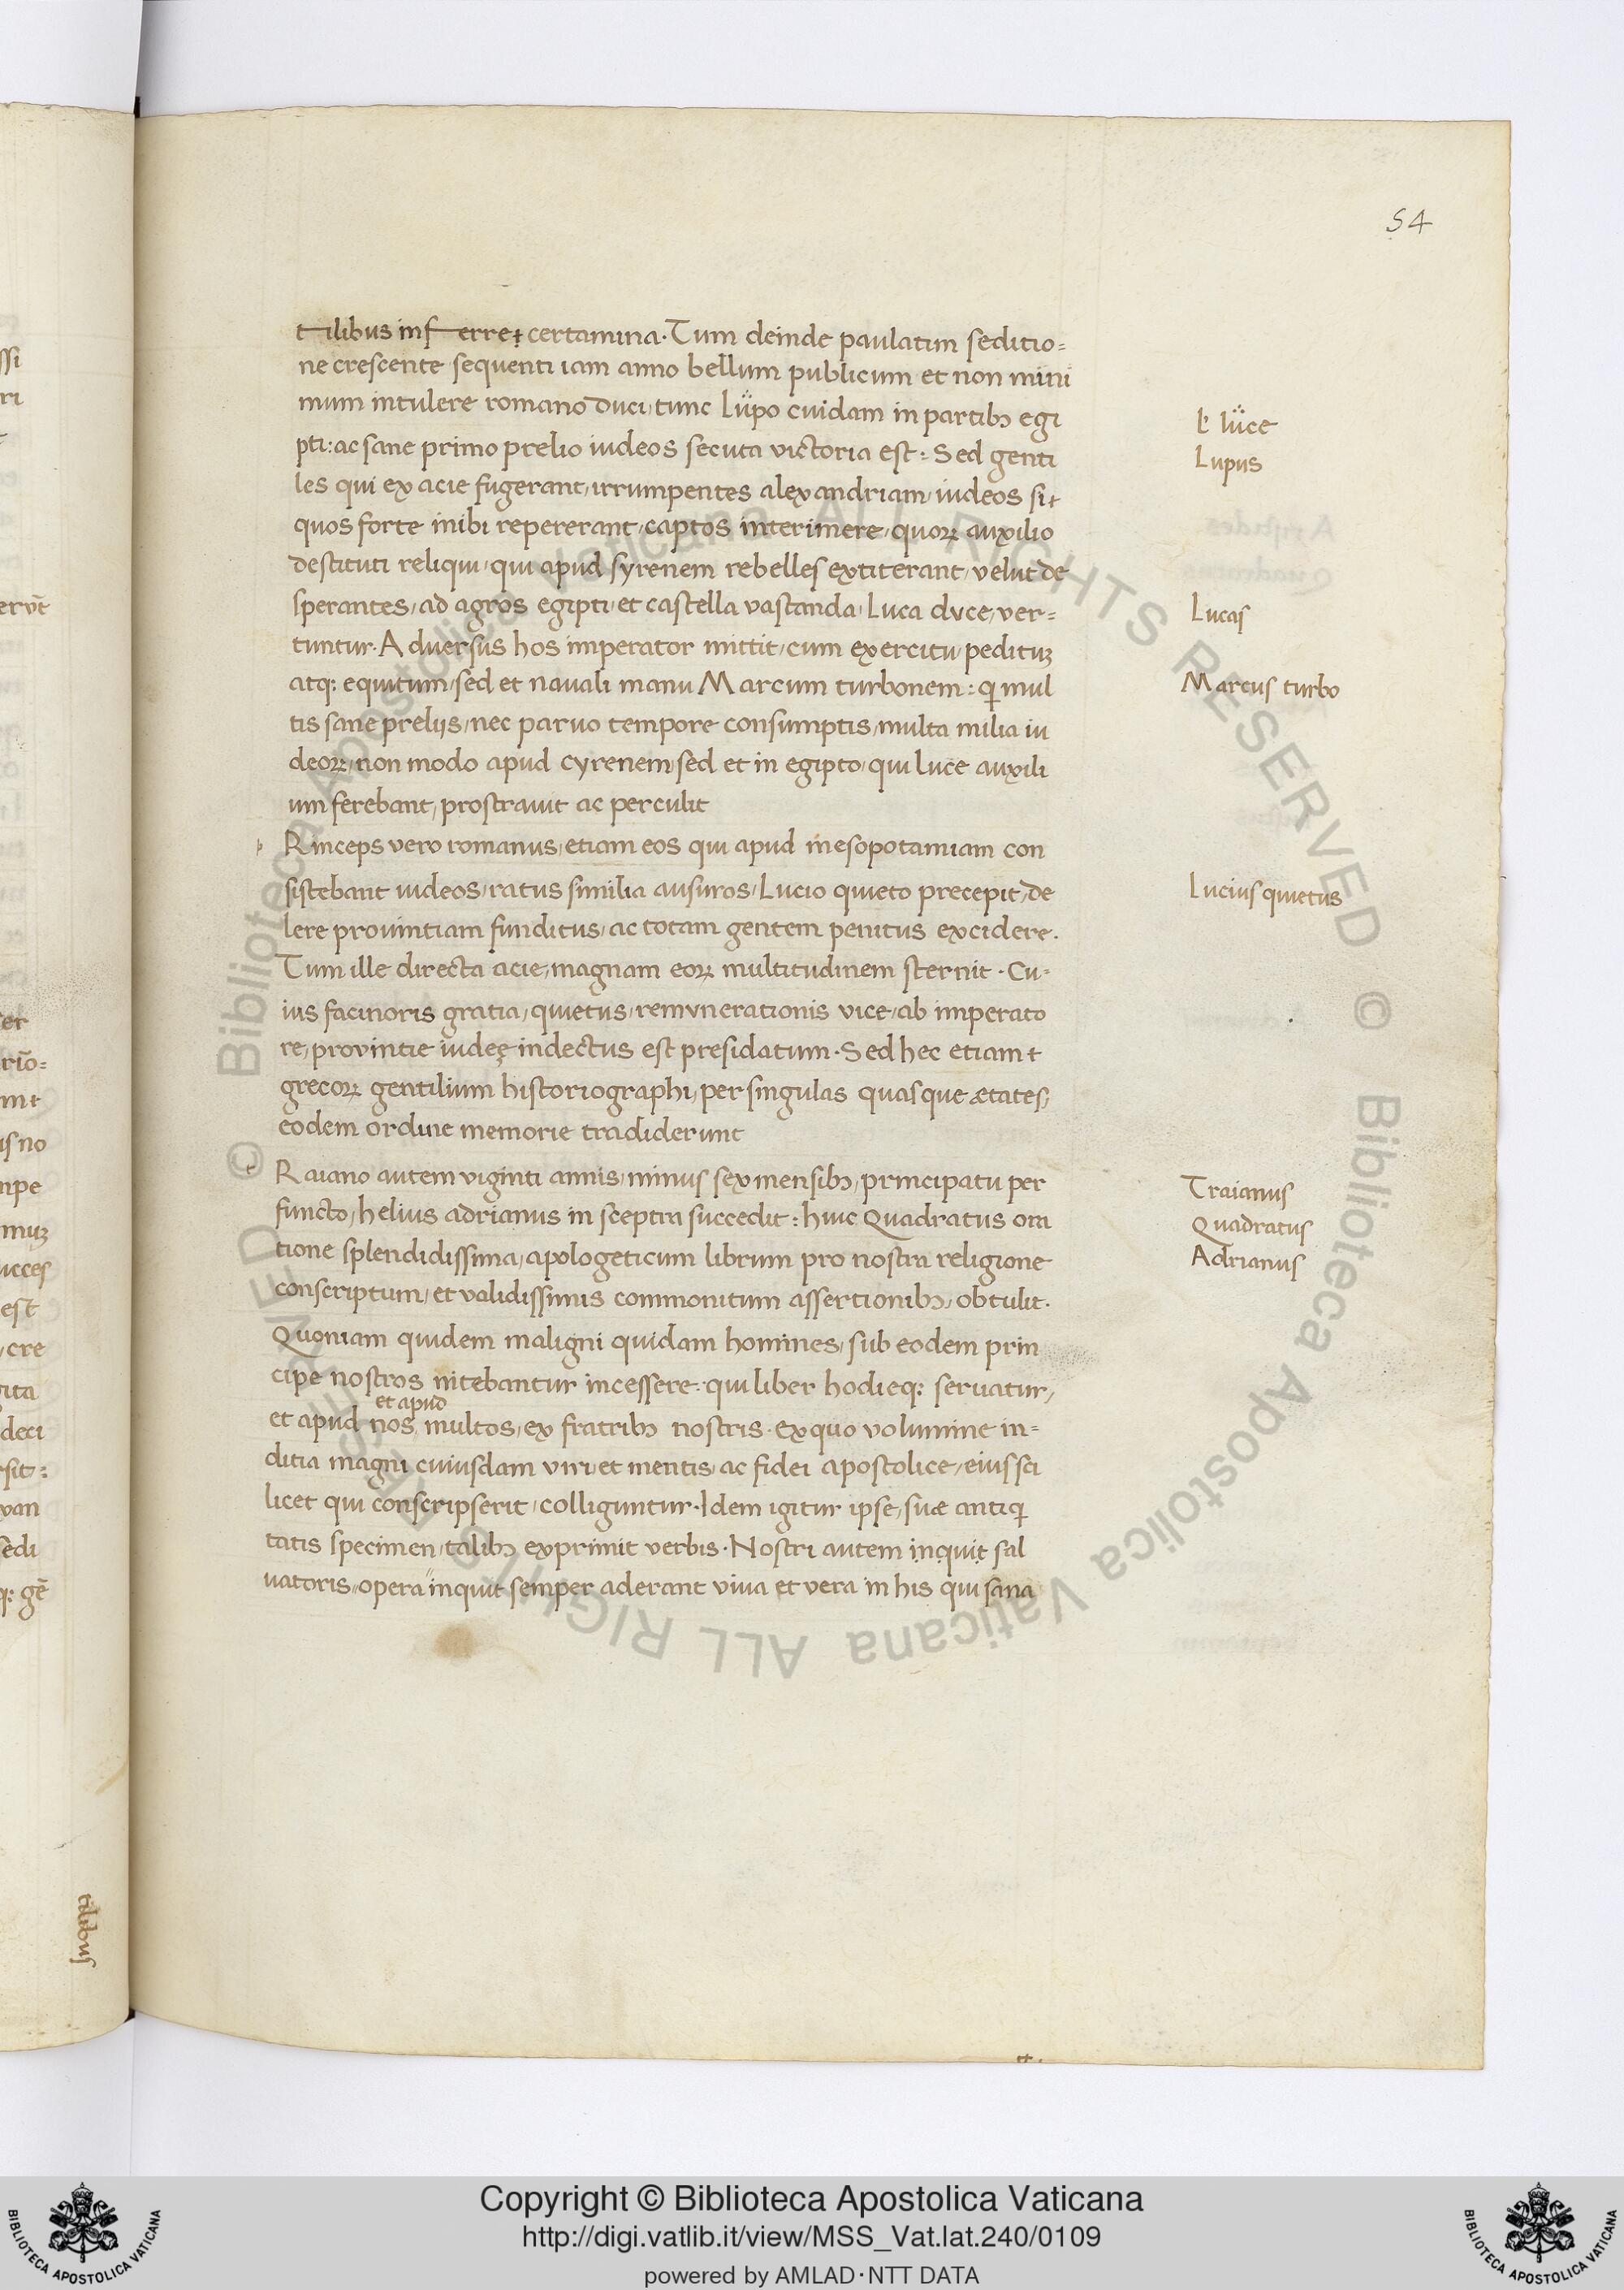 54
tilibus inferre certamina. Tum deinde paulatim seditio=
ne crescente sequenti iam anno bellum publicum et non mini
mum intulere romano duci, tunc lüpo cuidam in partibꝫ egi
pti: ac sane primo prelio iudeos secuta victoria est: Sed genti
les qui ex acie fugerant, irrumpentes alexandriam, iudeos si
quos forte inibi repererant, captos interimere, quoꝝ auxilio
destituti reliqui, qui apud syrenem rebelles extiterant, velut de
sperantes, ad agros egipti, et castella vastanda, Luca duce, ver=
tuntur. Aduersus hos imperator mittit, cum exercitu, pedituꝫ
atqꝫ equitum, sed et nauali manu Marcum turbonem: qi mul
tis sane prelijs, nec paruo tempore consumptis, multa milia iu
deoꝝ, non modo apud cyrenem, sed et in egipto, qui luce auxili
um ferebant, prostrauit ac perculit
p Rinceps vero romanus, etiam eos qui apud mesopotamiam con
sistebant iudeos, ratus similia ausuros, Lucio quieto precepit, de
lere prouintiam funditus, ac totam gentem penitus excidere.
Tum ille directa acie, magnam eoꝝ multitudinem sternit. Cu=
ius facinoris gratia, quietus, remunerationis vice, ab imperato
re, provintie iudeę indectus est presidatum. Sed hec etiam
grecoꝝ gentilium historiographi, per singulas quasque ætates,
eodem ordine memorie tradiderunt
t Raiano autem viginti annis, minus sex mensibꝫ, principatu per
functo, helius adrianus in sceptra succedit: huic Quadratus ora
tione splendidissima, apologeticum librum pro nostra religione
conscriptum, et validissimis commonitum assertionibꝫ, obtulit.
Quoniam quidem maligni quidam homines, sub eodem prin
cipe nostros nitebantur incessere: qui liber hodieqꝫ seruatur,
et apud
et apud nos multos, ex fratribꝫ nostris. Ex quo volumine in=
ditia magni cuiusdam viri et mentis, ac fidei apostolice, eius sci
licet qui conscripserit, colliguntur. Idem igitur ipse, suæ antiqi
tatis specimen, talibꝫ exprimit verbis. Nostri autem inquit sal
uatoris, opera inquit semper aderant viua et vera in his qui sana
lüce
Lupus
Lucas
Marcus turbo
Lucius quietus
Traianus
Quadratus
Adrianus
tilibus
© Biblioteca Apostolica Vaticana ALL RIGHTS RESERVED
© Biblioteca Apostolica Vaticana ALL RIGHTS RESERVED
Copyright © Biblioteca Apostolica Vaticana
http://digi.vatlib.it/view/MSS_Vat.lat.240/0109
powered by AMLAD·NTT DATA
BIBLIOTECA APOSTOLICA VATICANA
BIBLIOTECA APOSTOLICA VATICANA